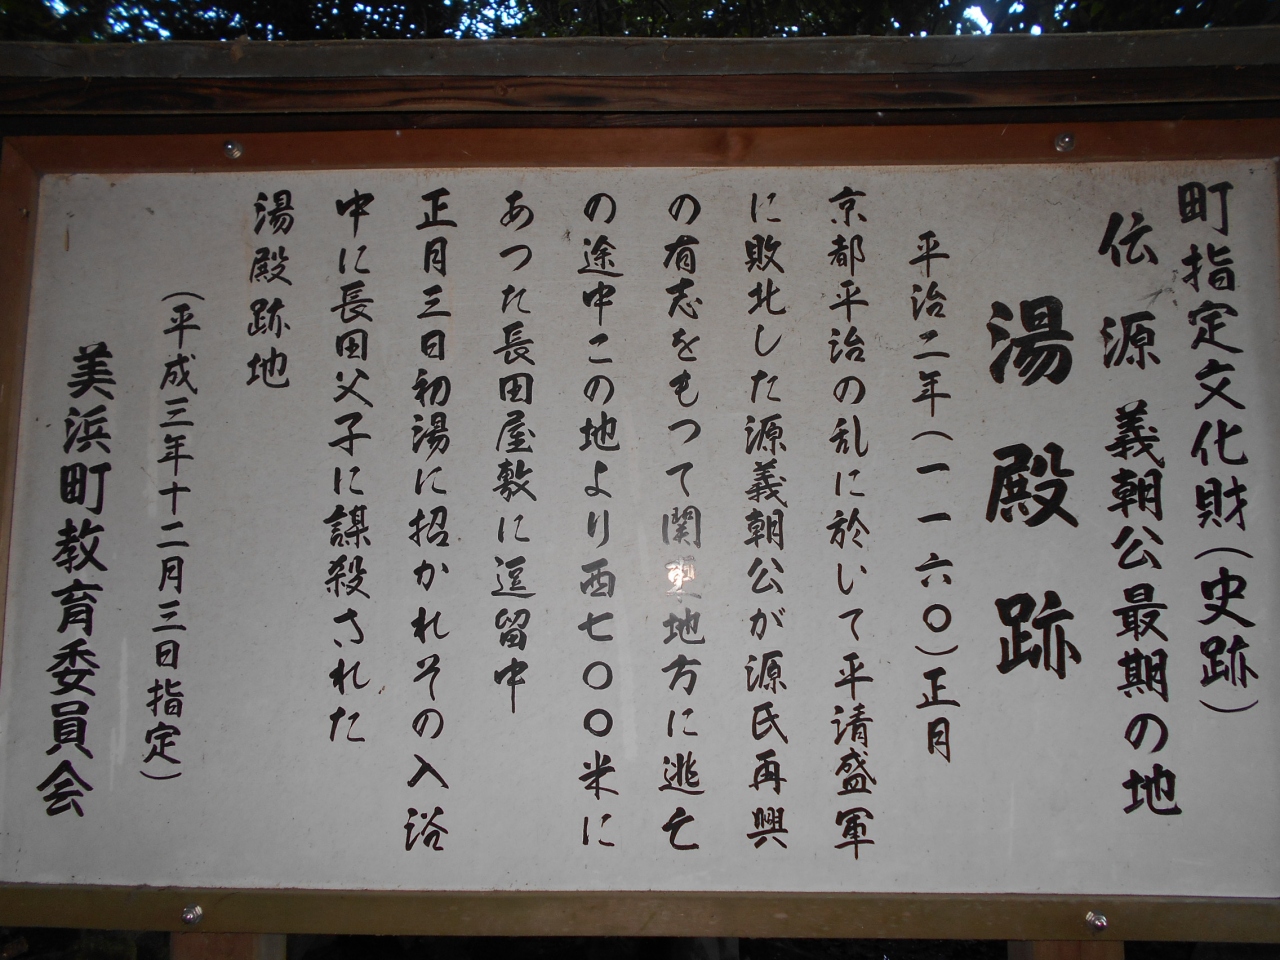 町指定文化財(史跡)
伝源義朝公最期の地
湯殿跡
平治二年(一一六〇)正月
京都平治の乱に於いて平清盛軍
に敗北した源義朝公が源氏再興
の有志をもつて関東地方に逃亡
の途中この地より西七〇〇米に
あつた長田屋敷に逗留中
正月三日初湯に招かれその入浴
中に長田父子に謀殺された
湯殿跡地
(平成三年十二月三日指定)
美浜町教育委員会